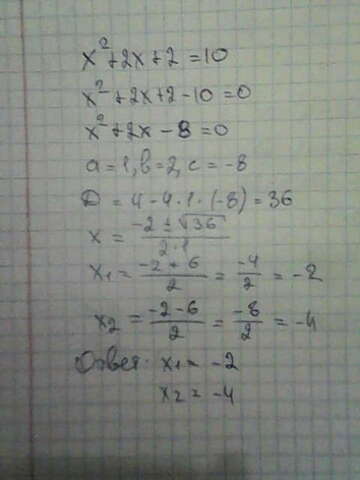 x² + 2x + 2 = 10
x² + 2x + 2 - 10 = 0
x² + 2x - 8 = 0
a = 1, b = 2, c = -8
D = 4 - 4 · 1 · (-8) = 36
x = (-2 ± √36) / (2 · 1)
x₁ = (-2 + 6) / 2 = -4 / 2 = -2
x₂ = (-2 - 6) / 2 = -8 / 2 = -4
Ответ: x₁ = -2
x₂ = -4